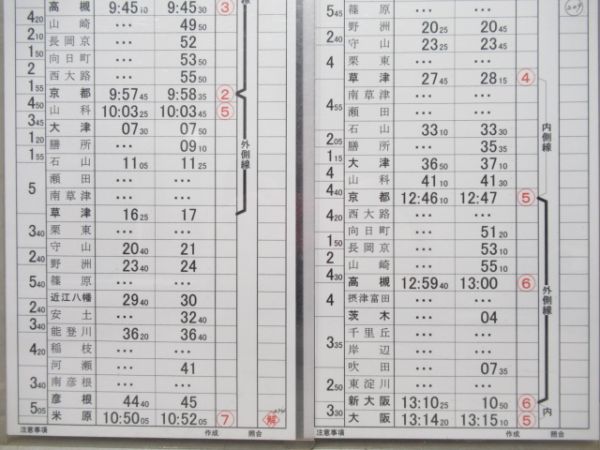 高槻 9:45 10 9:45 30 ③
4 20 山崎 ・・・ 49 50
2 10 長岡京 ・・・ 52
1 35 向日町 ・・・ 53 50
2 西大路 ・・・ 55 50
1 55 京都 9:57 45 9:58 35 ②
4 50 山科 10:03 25 10:03 45 ⑤
3 45 大津 07 30 07 50
1 20 膳所 ・・・ 09 10
1 55 石山 11 05 11 25
瀬田 ・・・ ・・・
5 南草津 ・・・ ・・・
草津 16 25 17
3 40 栗東 ・・・ ・・・
守山 20 40 21
2 40 野洲 23 40 24
5 40 篠原 ・・・ ・・・
近江八幡 29 40 30
2 40 安土 ・・・ 32 40
3 40 能登川 36 20 36 40
4 20 稲枝 ・・・ ・・・
河瀬 ・・・ 41
3 40 南彦根 ・・・ ・・・
彦根 44 40 45
5 05 米原 10:50 05 10:52 05 ⑦
外側線
注意事項 作成 照合
5 45 篠原 ・・・ ・・・
野洲 20 25 20 45
2 40 守山 23 25 23 45
4 栗東 ・・・ ・・・
草津 27 45 28 15 ④
4 55 南草津 ・・・ ・・・
瀬田 ・・・ ・・・
石山 33 10 33 30
3 05 膳所 ・・・ 35 35
大津 36 50 37 10
4 山科 41 10 41 30
4 40 京都 12:46 10 12:47 ⑤
4 40 西大路 ・・・ ・・・
向日町 ・・・ 51 20
2 長岡京 ・・・ 53 10
2 山崎 ・・・ 55 10
4 30 高槻 12:59 40 13:00 ⑥
4 摂津富田 ・・・ ・・・
茨木 ・・・ 04
千里丘 ・・・ ・・・
3 35 岸辺 ・・・ ・・・
吹田 ・・・ 07 35
2 50 東淀川 ・・・ ・・・
新大阪 13:10 25 13:10 50 ⑥
3 30 大阪 13:14 20 13:15 10 ⑤
内側線
外側線
内
注意事項 作成 照合